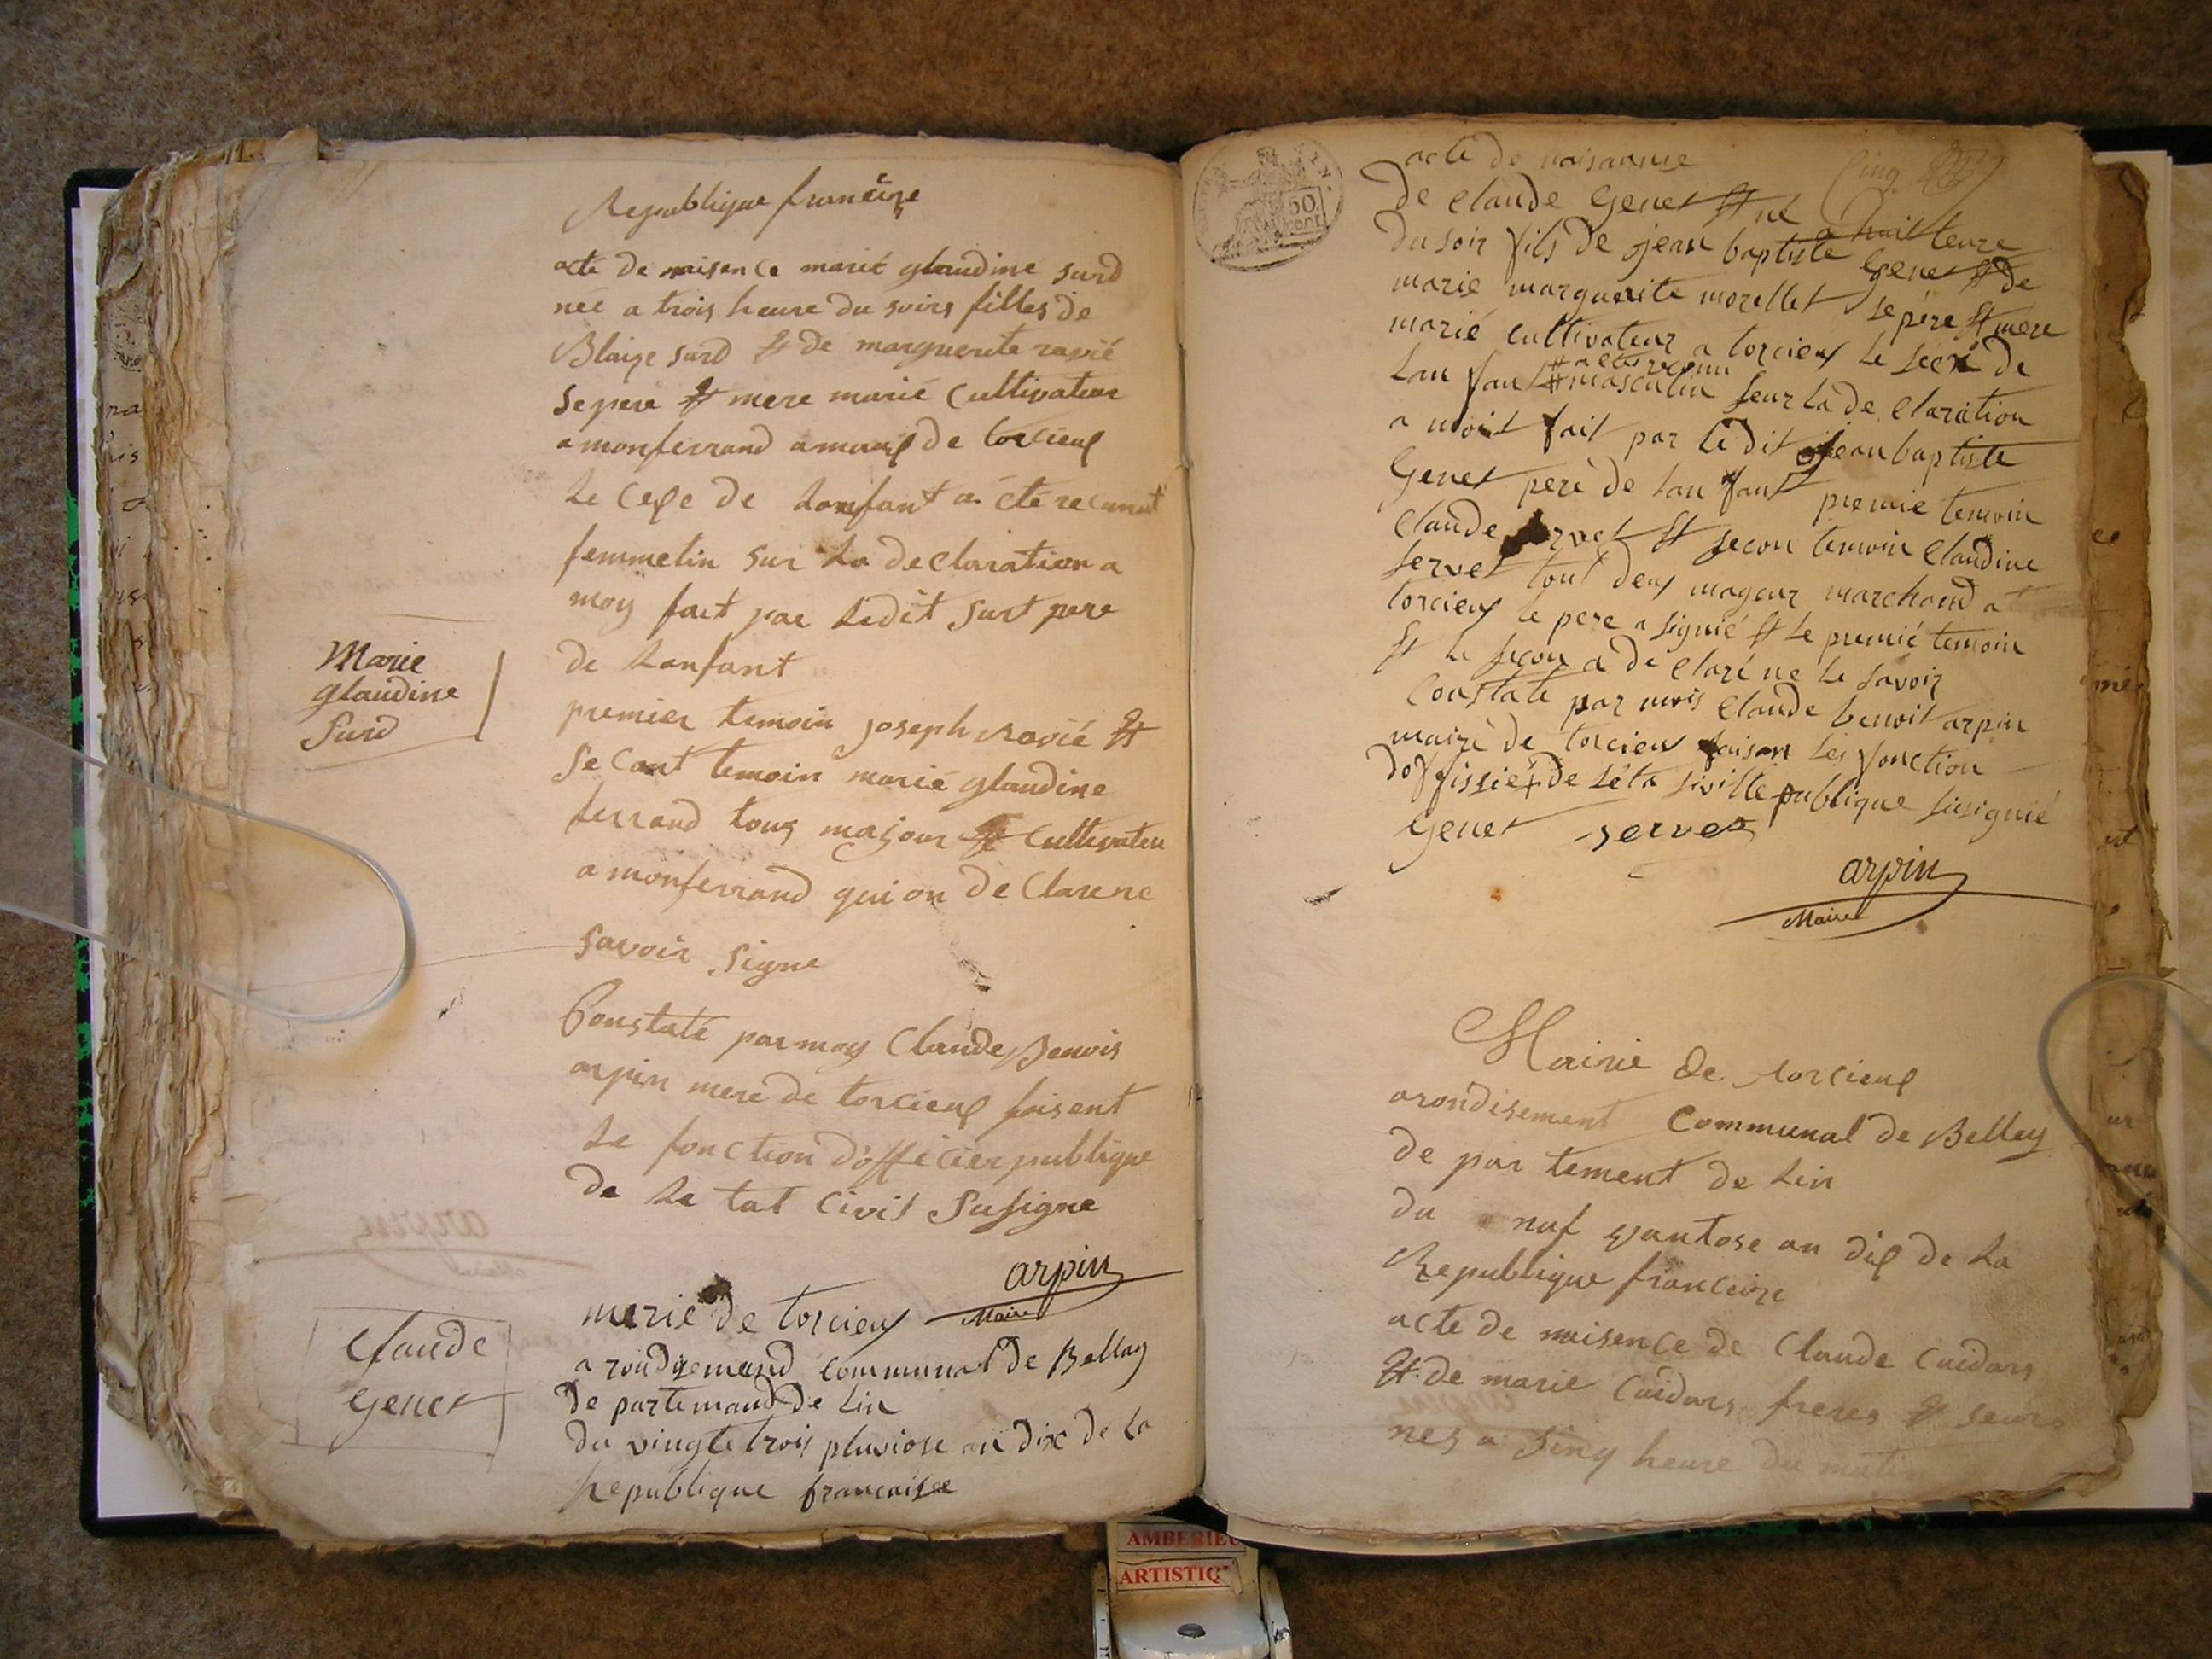 Republique franceize
acte de naisence marié glaudine surd
née a trois heure du soirs filles de
Blaize surd et de marguerite ravié
se pere et mere marié Cultivateur
a monferrand ameaux de torcieux
Le Cexe de Lonfant a été reconut
femmelin sur La declaration a
moy fait par Ledit surt pere
de Lanfant
Marie
glaudine
Surd
premier temoin joseph ravié et
Secont temoin marié glaudine
ferrand tous majour Cultivateu
a monferrand qui on de Clarene
savoir signe
Constaté par moy Claude Benois
arpin mere de torcieux faisent
Le fonction d'officier publique
de Le tat Civil Susigne
arpin
Maire
Claude
Genet
merie de torcieux
a rondizemand communal de Bellay
de partemand de Lin
du vingte trois pluviose an dix de La
Republique francaisse
50
cent
Cinq
acte de naisanse
de Claude Genet et né a huit teure
du soir fils de jean baptiste Genet et de
marie marguerite morellet se pére et mere
marié cultivateur a torcieux Le sexe de
Lan fant # a etere conu
# masculin seur La de Claration
a moit fait par Le dit jean baptiste
Genet peré de Lan fant premie temoin
Claude servet et secon temoin Claudine
servet tout deux mageur marchand a
torcieux le pere a signié et Le premié temoin
et Le seçon a de Claré ne Le savoir
Constate par mois Claude benoit arpin
mairé de torcieux faisan Les fonction
doffissié de Léta siville publique susignié
Genet servet
arpin
Maire
Mairie de torcieux
arondisement Communal de Belley
de par tement de Lin
du nuf vantose an dix de La
Republique franceize
acte de naisence de Claude Cuidars
et de marie Cuidars freres et seurs
nes a sinq heure du matin
AMBERIEU
ARTISTIQ